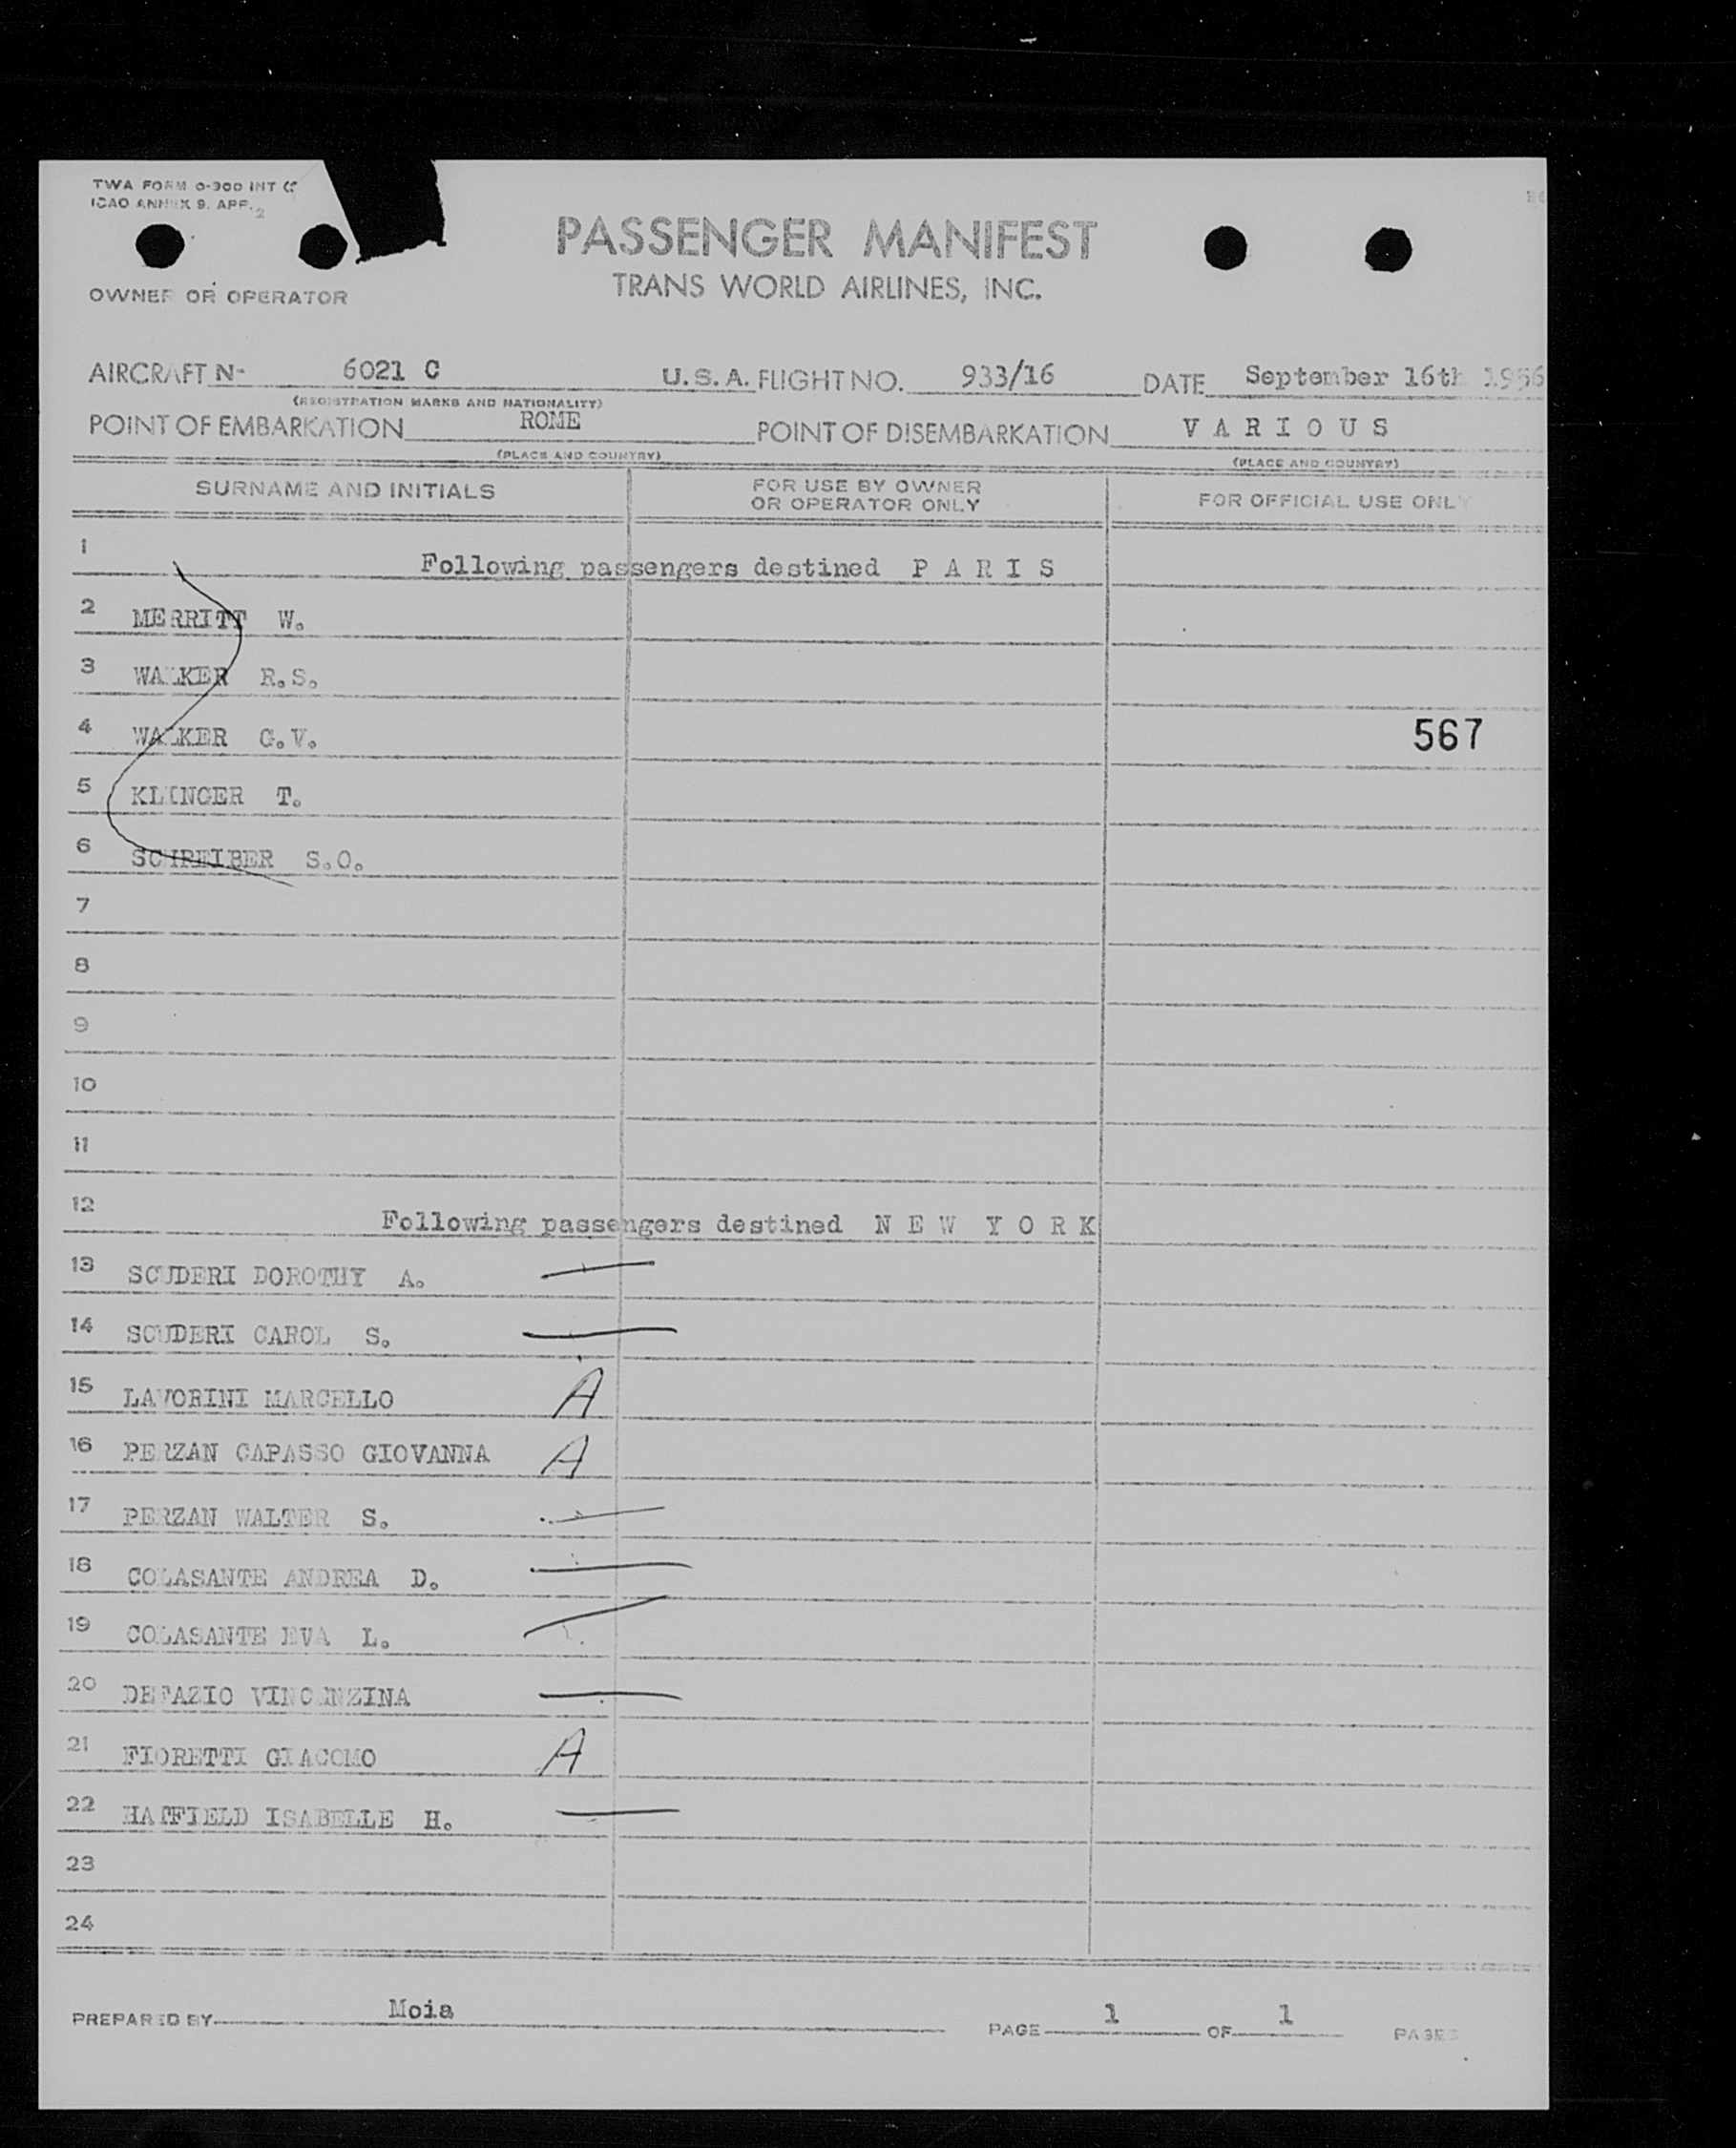 TWA FORM 0-300 INT
ICAO ANNEX 9. APP. 2
PASSENGER MANIFEST
TRANS WORLD AIRLINES, INC.
OWNER OR OPERATOR
AIRCRAFT N- 6021 C U.S.A. FLIGHT NO. 933/16 DATE September 16th 1956
(REGISTRATION MARKS AND NATIONALITY)
POINT OF EMBARKATION ROME POINT OF DISEMBARKATION V A R I O U S
(PLACE AND COUNTRY) (PLACE AND COUNTRY)
SURNAME AND INITIALS FOR USE BY OWNER OR OPERATOR ONLY FOR OFFICIAL USE ONLY
1 Following passengers destined P A R I S
2 MERRITT W.
3 WALKER R.S.
4 WALKER G.V. 567
5 KLINGER T.
6 SCHREIBER S.O.
7
8
9
10
11
12 Following passengers destined N E W Y O R K
13 SCUDERI DOROTHY A.
14 SCUDERI CAROL S.
15 LAVORINI MARCELLO A
16 PERZAN CAPASSO GIOVANNA A
17 PERZAN WALTER S.
18 COLASANTE ANDREA D.
19 COLASANTE EVA L.
20 DEFAZIO VINCENZINA
21 FIORETTI GIACOMO A
22 HATFIELD ISABELLE H.
23
24
PREPARED BY Moia PAGE 1 OF 1 PAGES